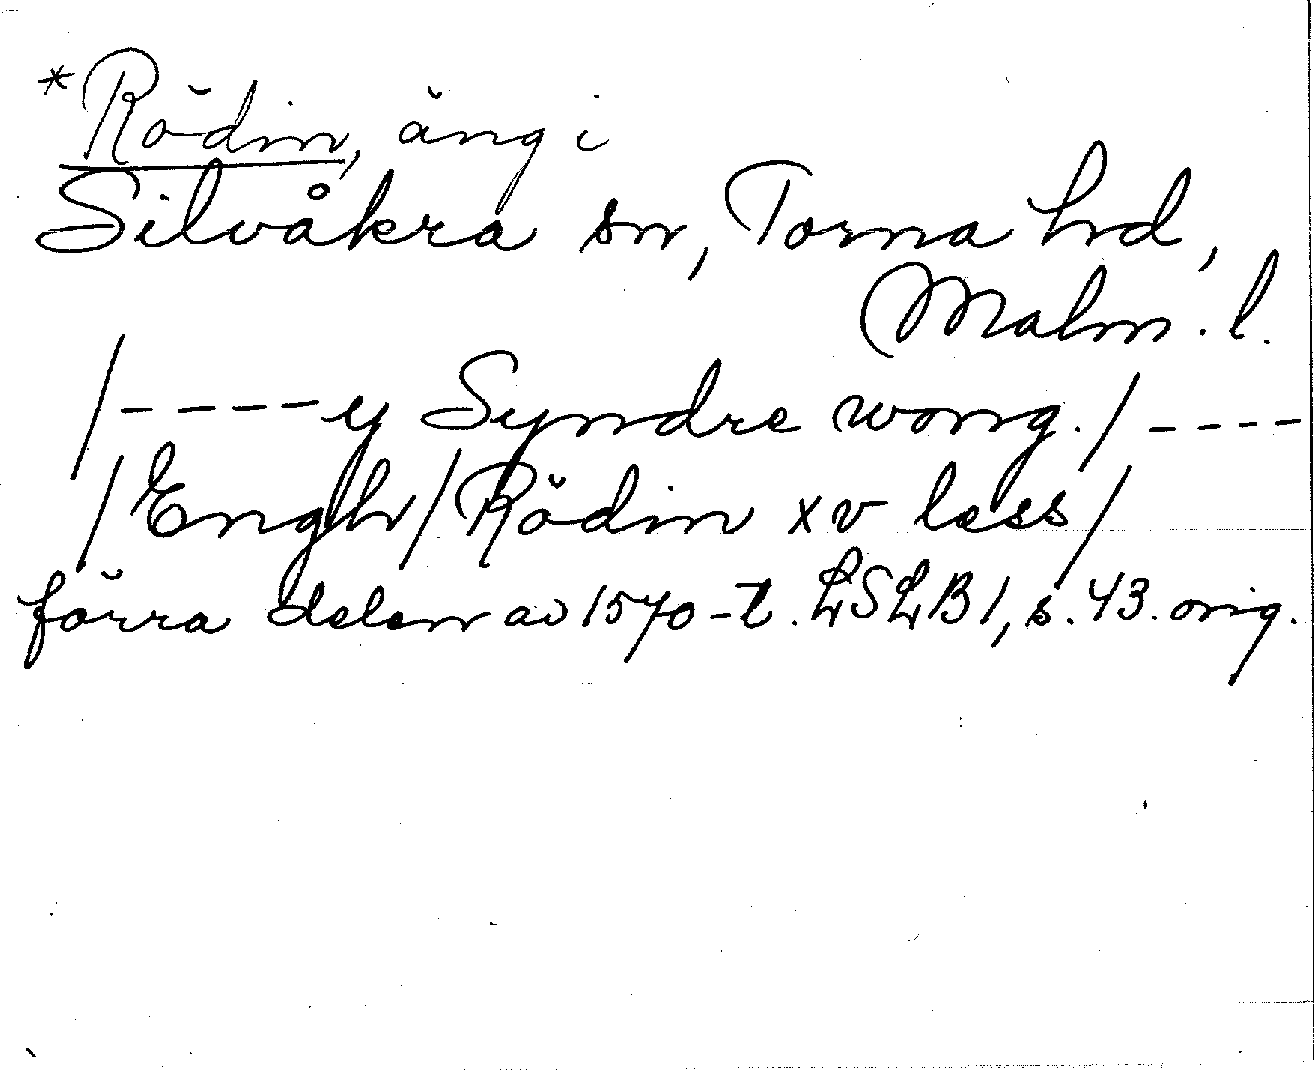 *Rödin, äng i
Silvåkra sn, Torna hrd,
Malm. l.
/----y Syndre wong./----
/Engh/Rödin xv less/
förra delen av 1570-t. LSLB1, s. 43. orig.